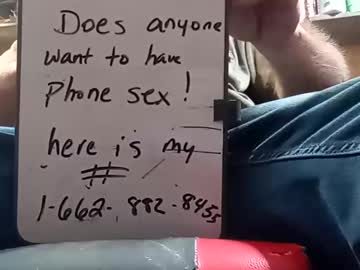 Does anyone
want to have
Phone sex!
here is my
#
1-662-882-8455